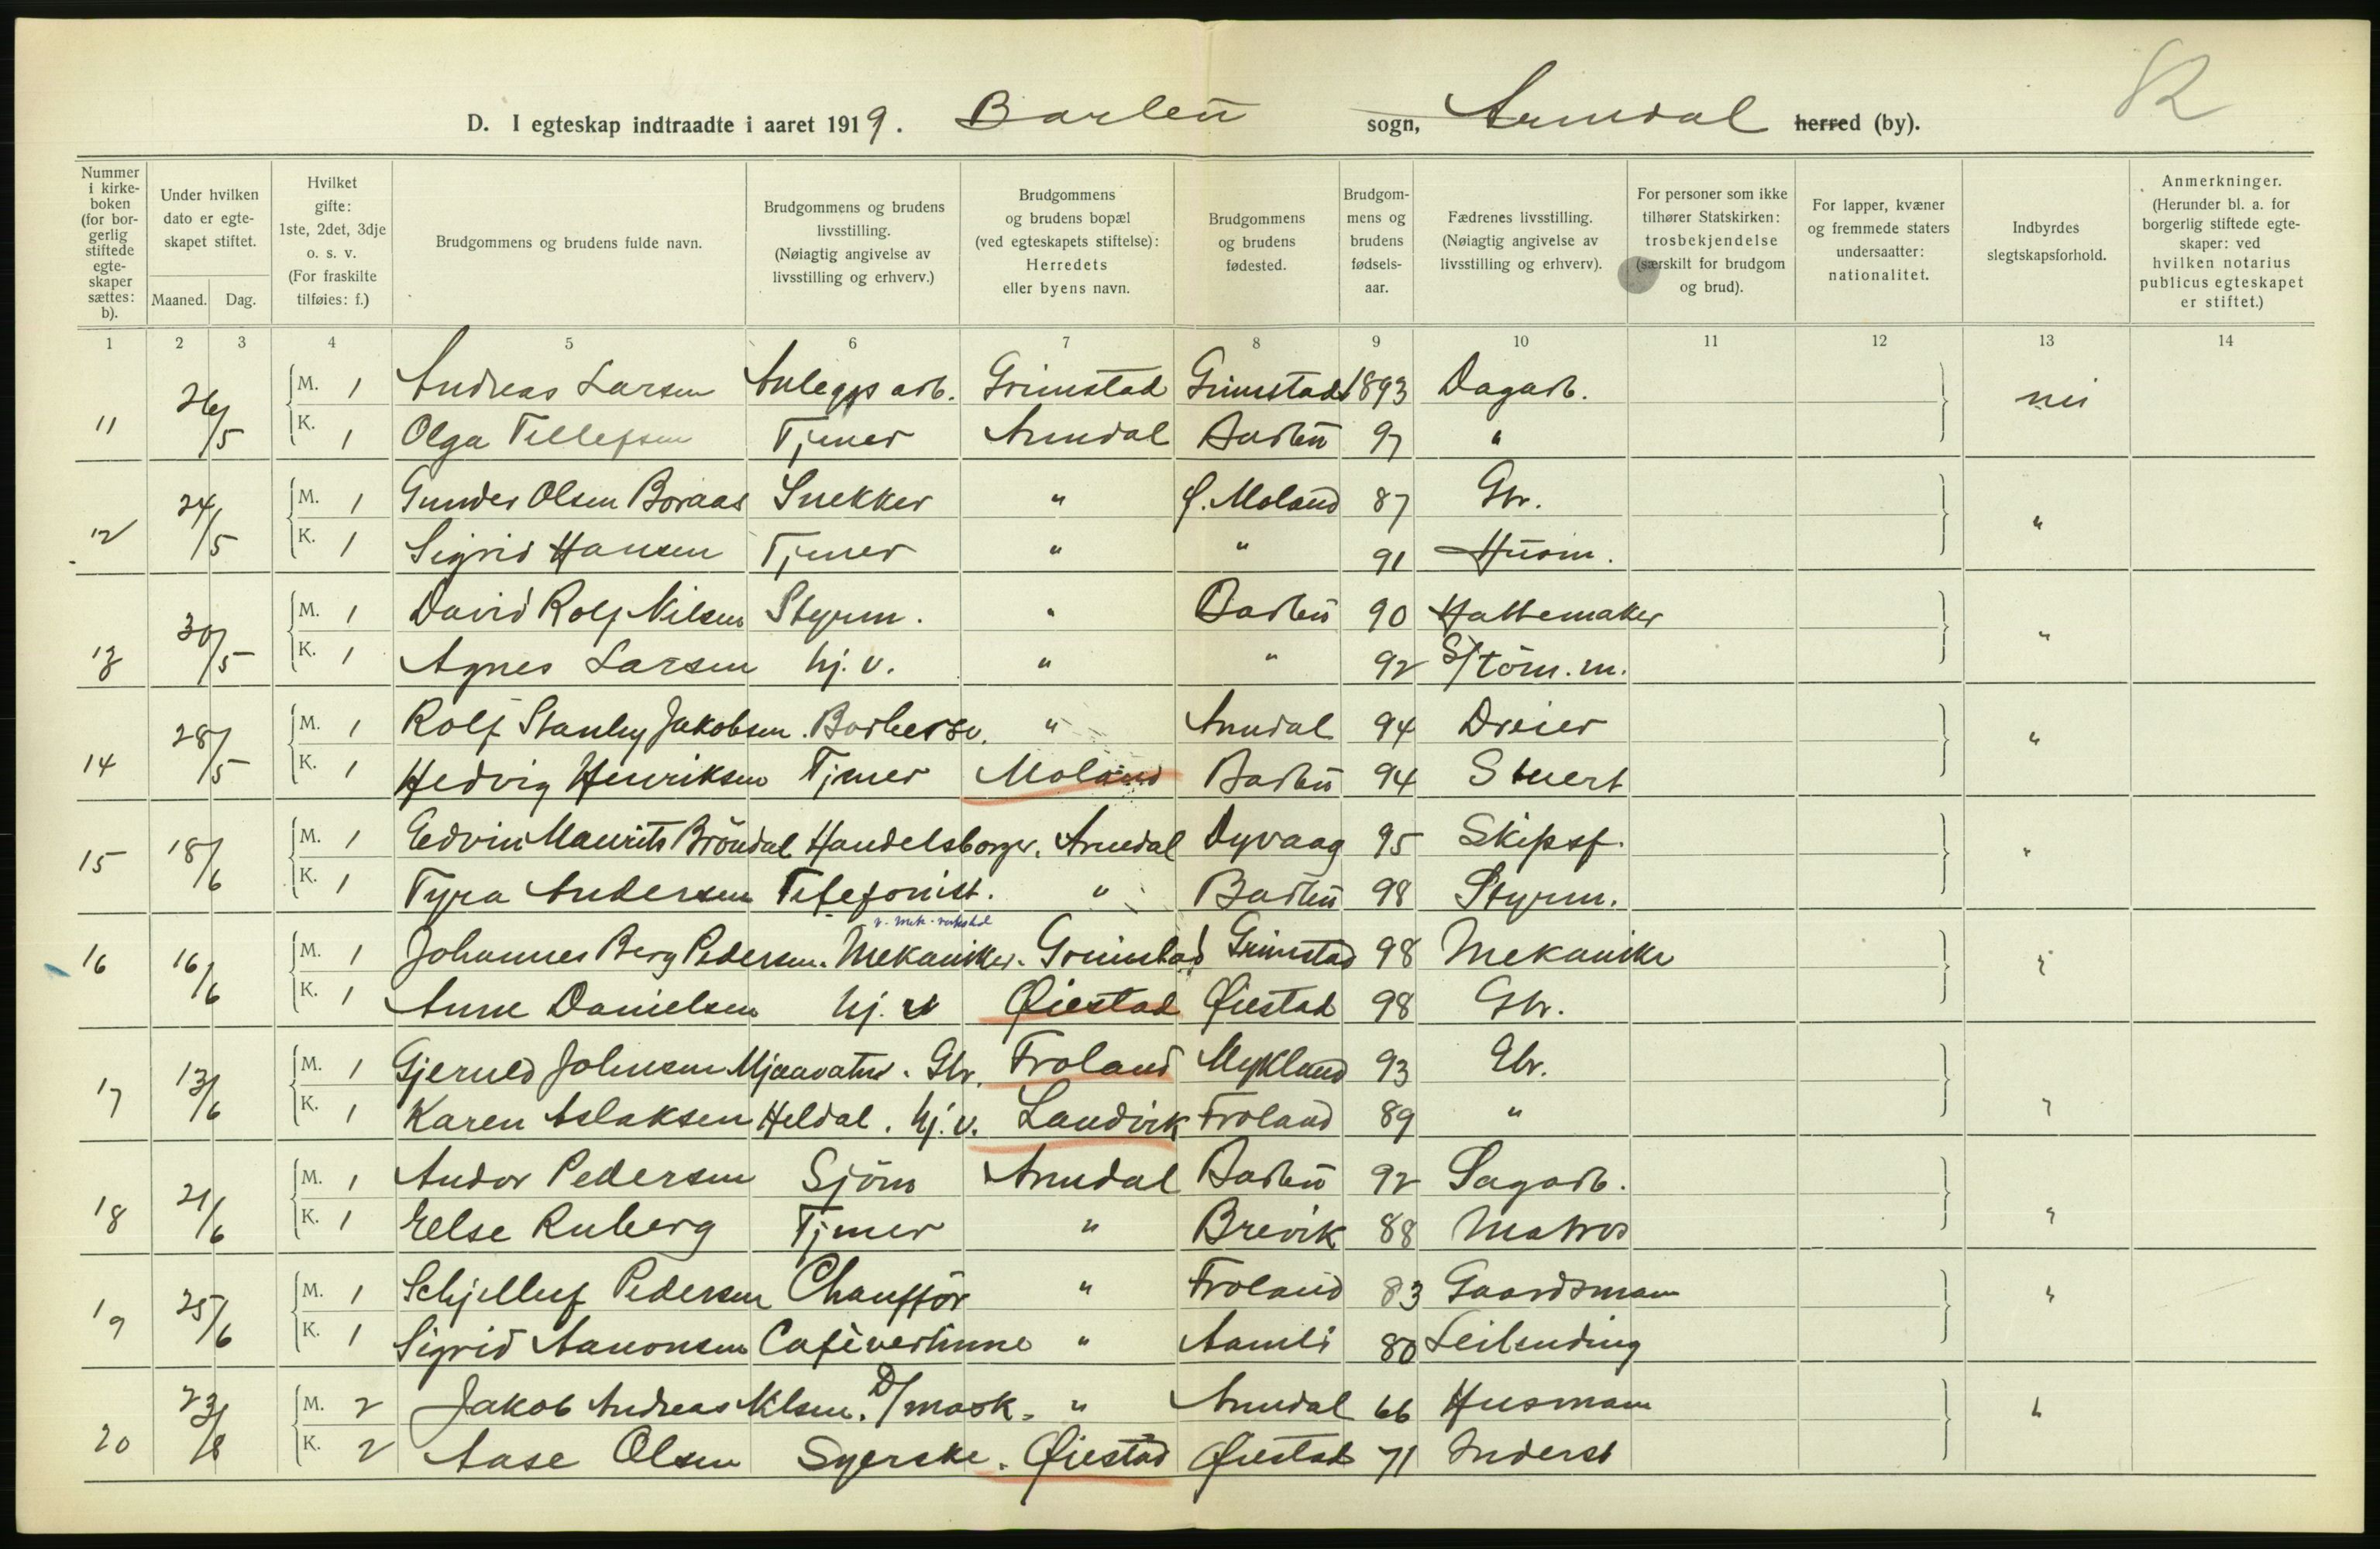 82
D. I egteskap indtraadte i aaret 1919. Barbu sogn, Arendal herred (by).
Nummer i kirkeboken (for borgerlig stiftede egteskaper sættes: b). | Under hvilken dato er egteskapet stiftet. Maaned. Dag. | Hvilket gifte: 1ste, 2det, 3dje o. s. v. (For fraskilte tilføies: f.) | Brudgommens og brudens fulde navn. | Brudgommens og brudens livsstilling. (Nøiagtig angivelse av livsstilling og erhverv.) | Brudgommens og brudens bopæl (ved egteskapets stiftelse): Herredets eller byens navn. | Brudgommens og brudens fødested. | Brudgommens og brudens fødselsaar. | Fædrenes livsstilling. (Nøiagtig angivelse av livsstilling og erhverv). | For personer som ikke tilhører Statskirken: trosbekjendelse (særskilt for brudgom og brud). | For lapper, kvæner og fremmede staters undersaatter: nationalitet. | Indbyrdes slegtskapsforhold. | Anmerkninger. (Herunder bl. a. for borgerlig stiftede egteskaper: ved hvilken notarius publicus egteskapet er stiftet.)
1 2 3 4 5 6 7 8 9 10 11 12 13 14
11 26/5 M. 1 Andreas Larsen Anleggs arb. Grimstad Grimstad 1893 Dagarb. nei
K. 1 Olga Tellefsen Tjener Arendal Barbu 97 "
12 24/5 M. 1 Gunder Olsen Boraas Snekker " Ø. Moland 87 Gbr. "
K. 1 Sigrid Hansen Tjener " " 91 Husm.
13 30/5 M. 1 David Rolf Nilsen Styrm. " Barbu 90 Hattemaker "
K. 1 Agnes Larsen hj. v. " " 92 S/töm. m.
14 28/5 M. 1 Rolf Stanley Jakobsen. Barbersv. " Arendal 94 Dreier "
K. 1 Hedvig Henriksen Tjener Moland Barbu 94 Stuert
15 18/6 M. 1 Edvin Maurits Bröndal Handelsborger. Arendal Dyvaag 95 Skipsf. "
K. 1 Tyra Andersen Telefonist. " Barbu 98 Styrm.
v. mek. verksted
16 16/6 M. 1 Johannes Berg Pedersen. Mekaniker. Grimstad Grimstad 98 Mekaniker "
K. 1 Anne Danielsen hj. v Øiestad Øiestad 98 Gbr.
17 13/6 M. 1 Gjeruld Johnsen Mjaavatn. Gbr. Froland Mykland 93 Gbr.
K. 1 Karen Aslaksen Heldal. hj. v. Landvik Froland 89 " "
18 21/6 M. 1 Andor Pedersen Sjöm Arendal Barbu 92 Sagarb.
K. 1 Else Ruberg Tjener " Brevik 88 Matros "
19 25/6 M. 1 Schjelluf Pedersen Chaufför " Froland 83 Gaardsmann "
K. 1 Sigrid Aanonsen Cafèvertinne " Aamli 80 Leilending
20 23/8 M. 2 Jakob Andreas Nilsen. D/mask. " Arendal 66 Husmann "
K. 2 Aase Olsen Syerske. Øiestad Øiestad 71 Inderst